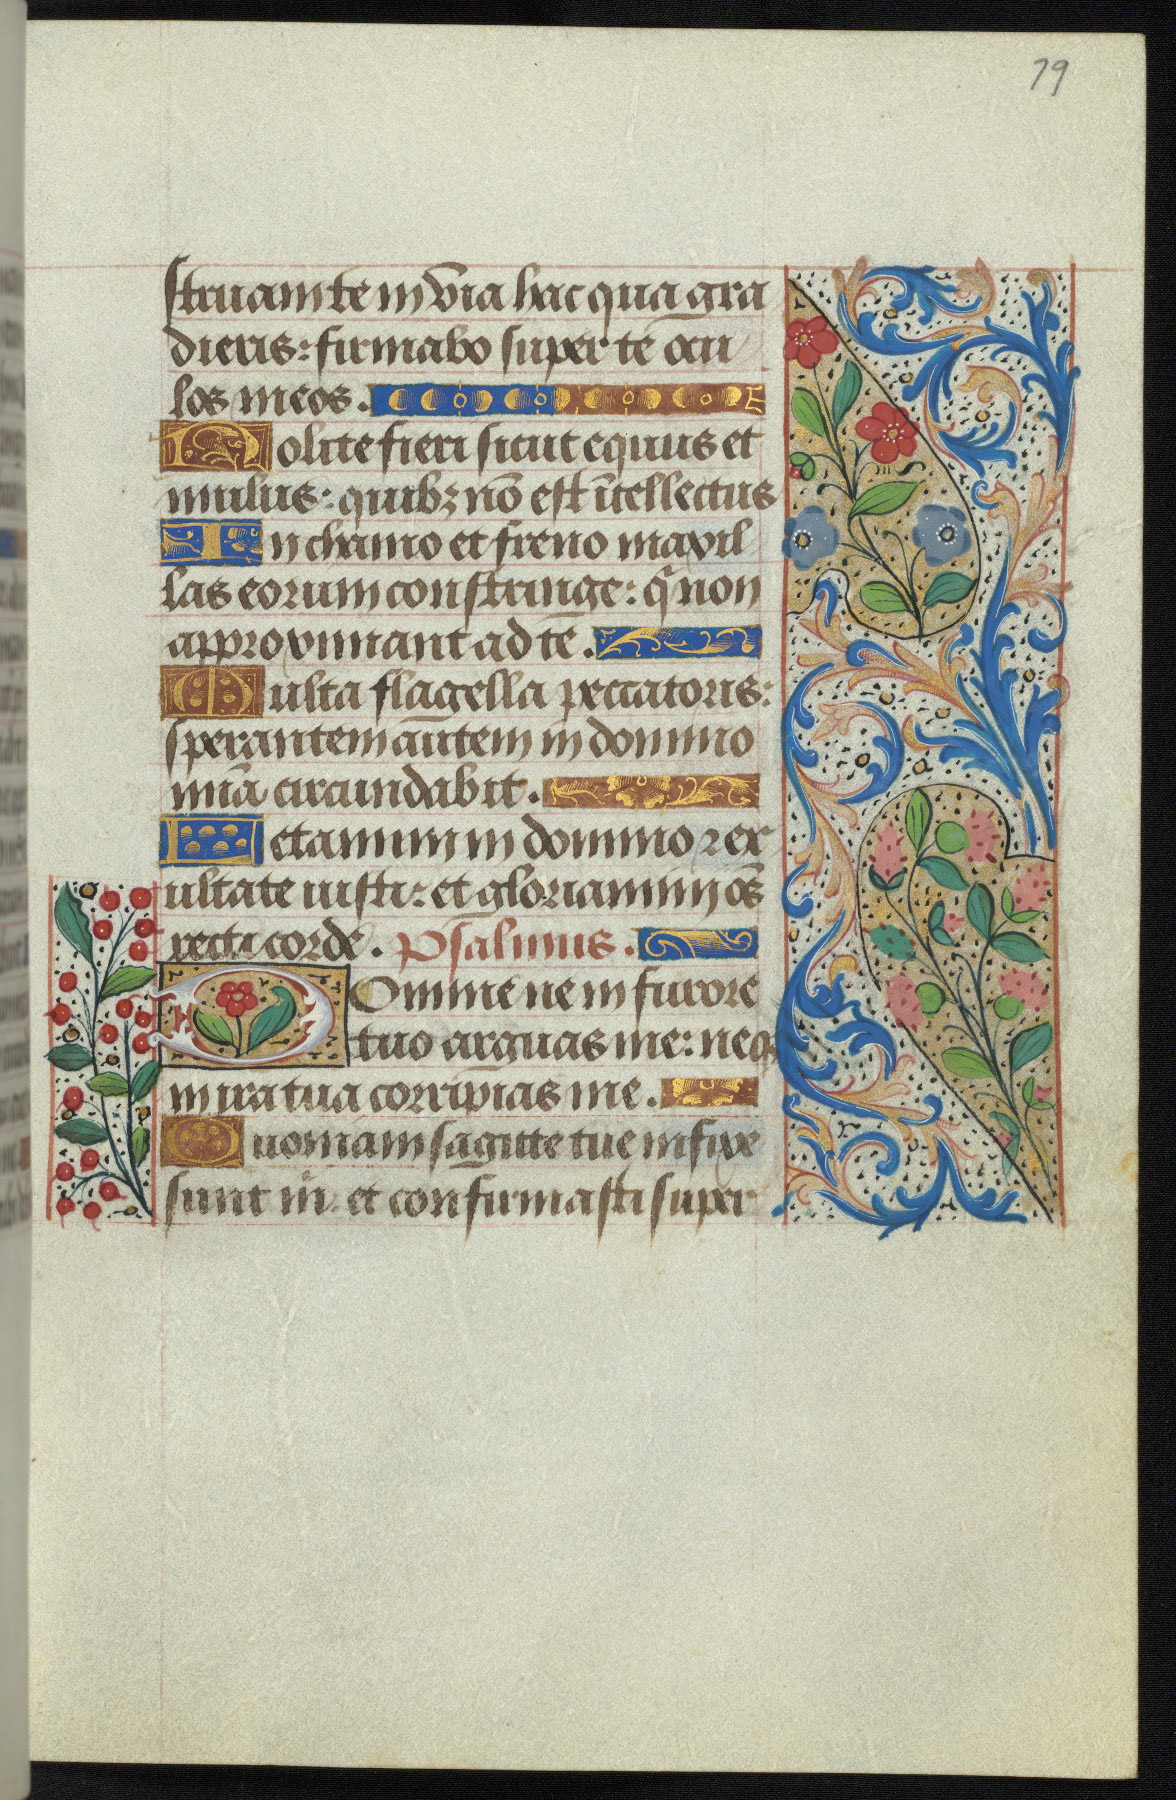 79
struam te in via hac qua gra
dieris: firmabo super te ocu
los meos.
Nolite fieri sicut equus et
mulus: quibꝫ nō est ītellectus
In chamo et freno maxil
las eorum constringe: q̄ non
approximant ad te.
Multa flagella peccatoris:
sperantem autem in domino
mīa circundabit.
Letamini in domino ꝛ ex
ultate iusti: et gloriamini oēs
recti corde. Psalmus.
Domine ne in furore
tuo arguas me: neqꝫ
in ira tua corripias me.
Quoniam sagitte tue infixe
sunt m̄: et confirmasti super